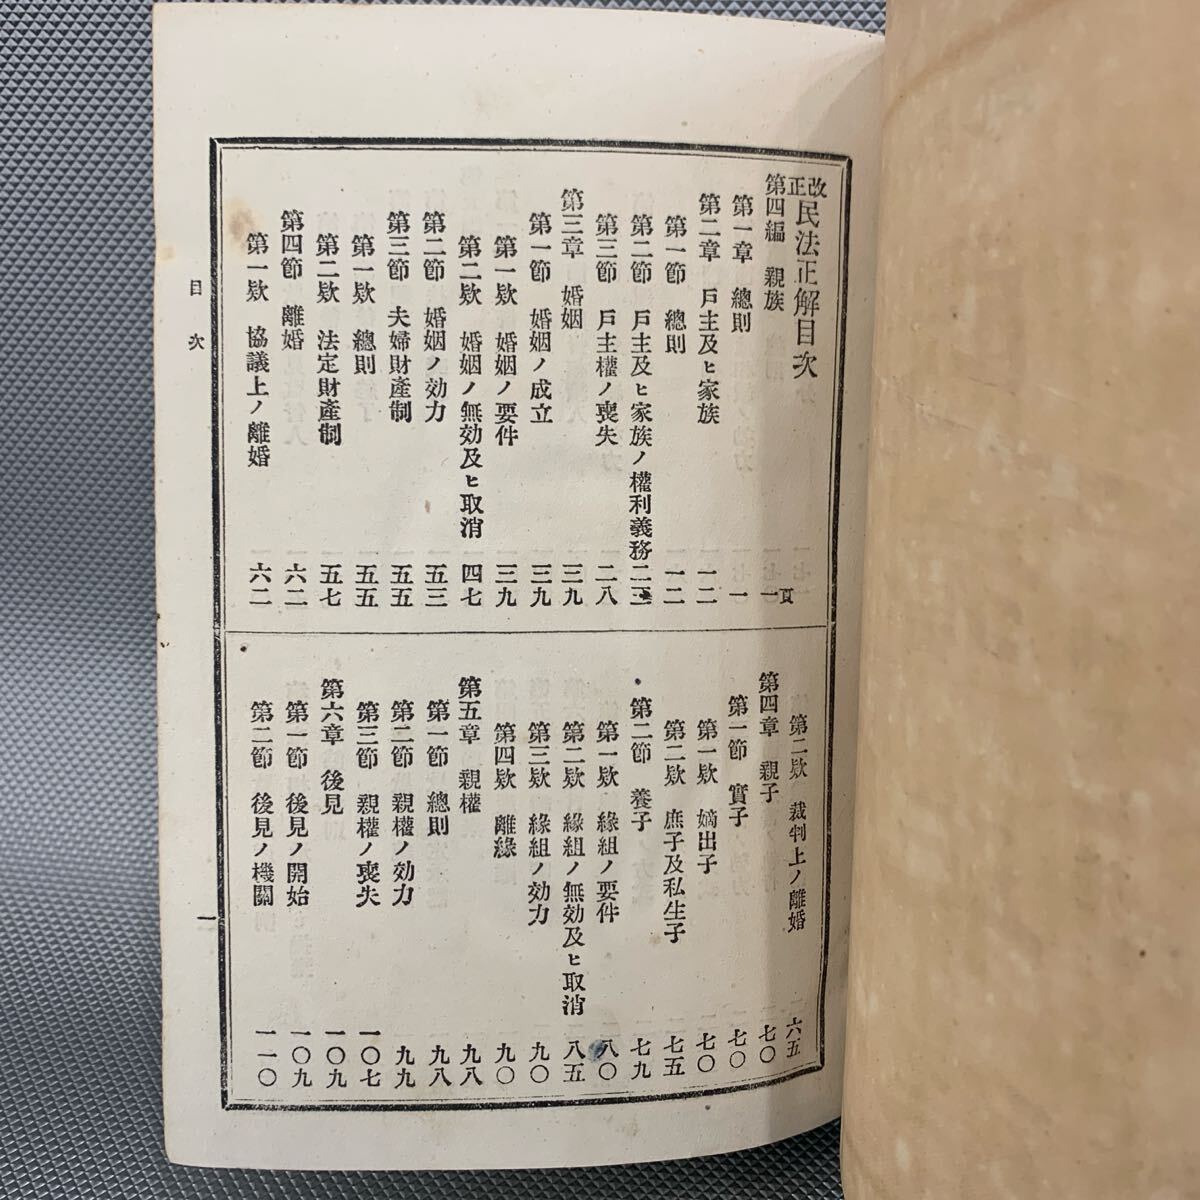 改正民法正解目次
頁
第四編　親族　一
第一章　總則　一
第二章　戸主及ヒ家族　一二
第一節　總則　一二
第二節　戸主及ヒ家族ノ權利義務
第三節　戸主權ノ喪失　二八
第三章　婚姻　三九
第一節　婚姻ノ成立　三九
第一欵　婚姻ノ要件　三九
第二欵　婚姻ノ無効及ヒ取消　四七
第二節　婚姻ノ効力　五三
第三節　夫婦財產制　五五
第一欵　總則　五五
第二欵　法定財產制　五七
第四節　離婚　六二
第一欵　協議上ノ離婚　六二
第二欵　裁判上ノ離婚　六五
第四章　親子　七〇
第一節　實子　七〇
第一欵　嫡出子　七〇
第二欵　庶子及私生子　七五
第二節　養子　七九
第一欵　緣組ノ要件　八〇
第二欵　緣組ノ無効及ヒ取消　八五
第三欵　緣組ノ効力　九〇
第四欵　離緣　九〇
第五章　親權　九八
第一節　總則　九八
第二節　親權ノ効力　九九
第三節　親權ノ喪失　一〇七
第六章　後見　一〇九
第一節　後見ノ開始　一〇九
第二節　後見ノ機關　一一〇
目次
一